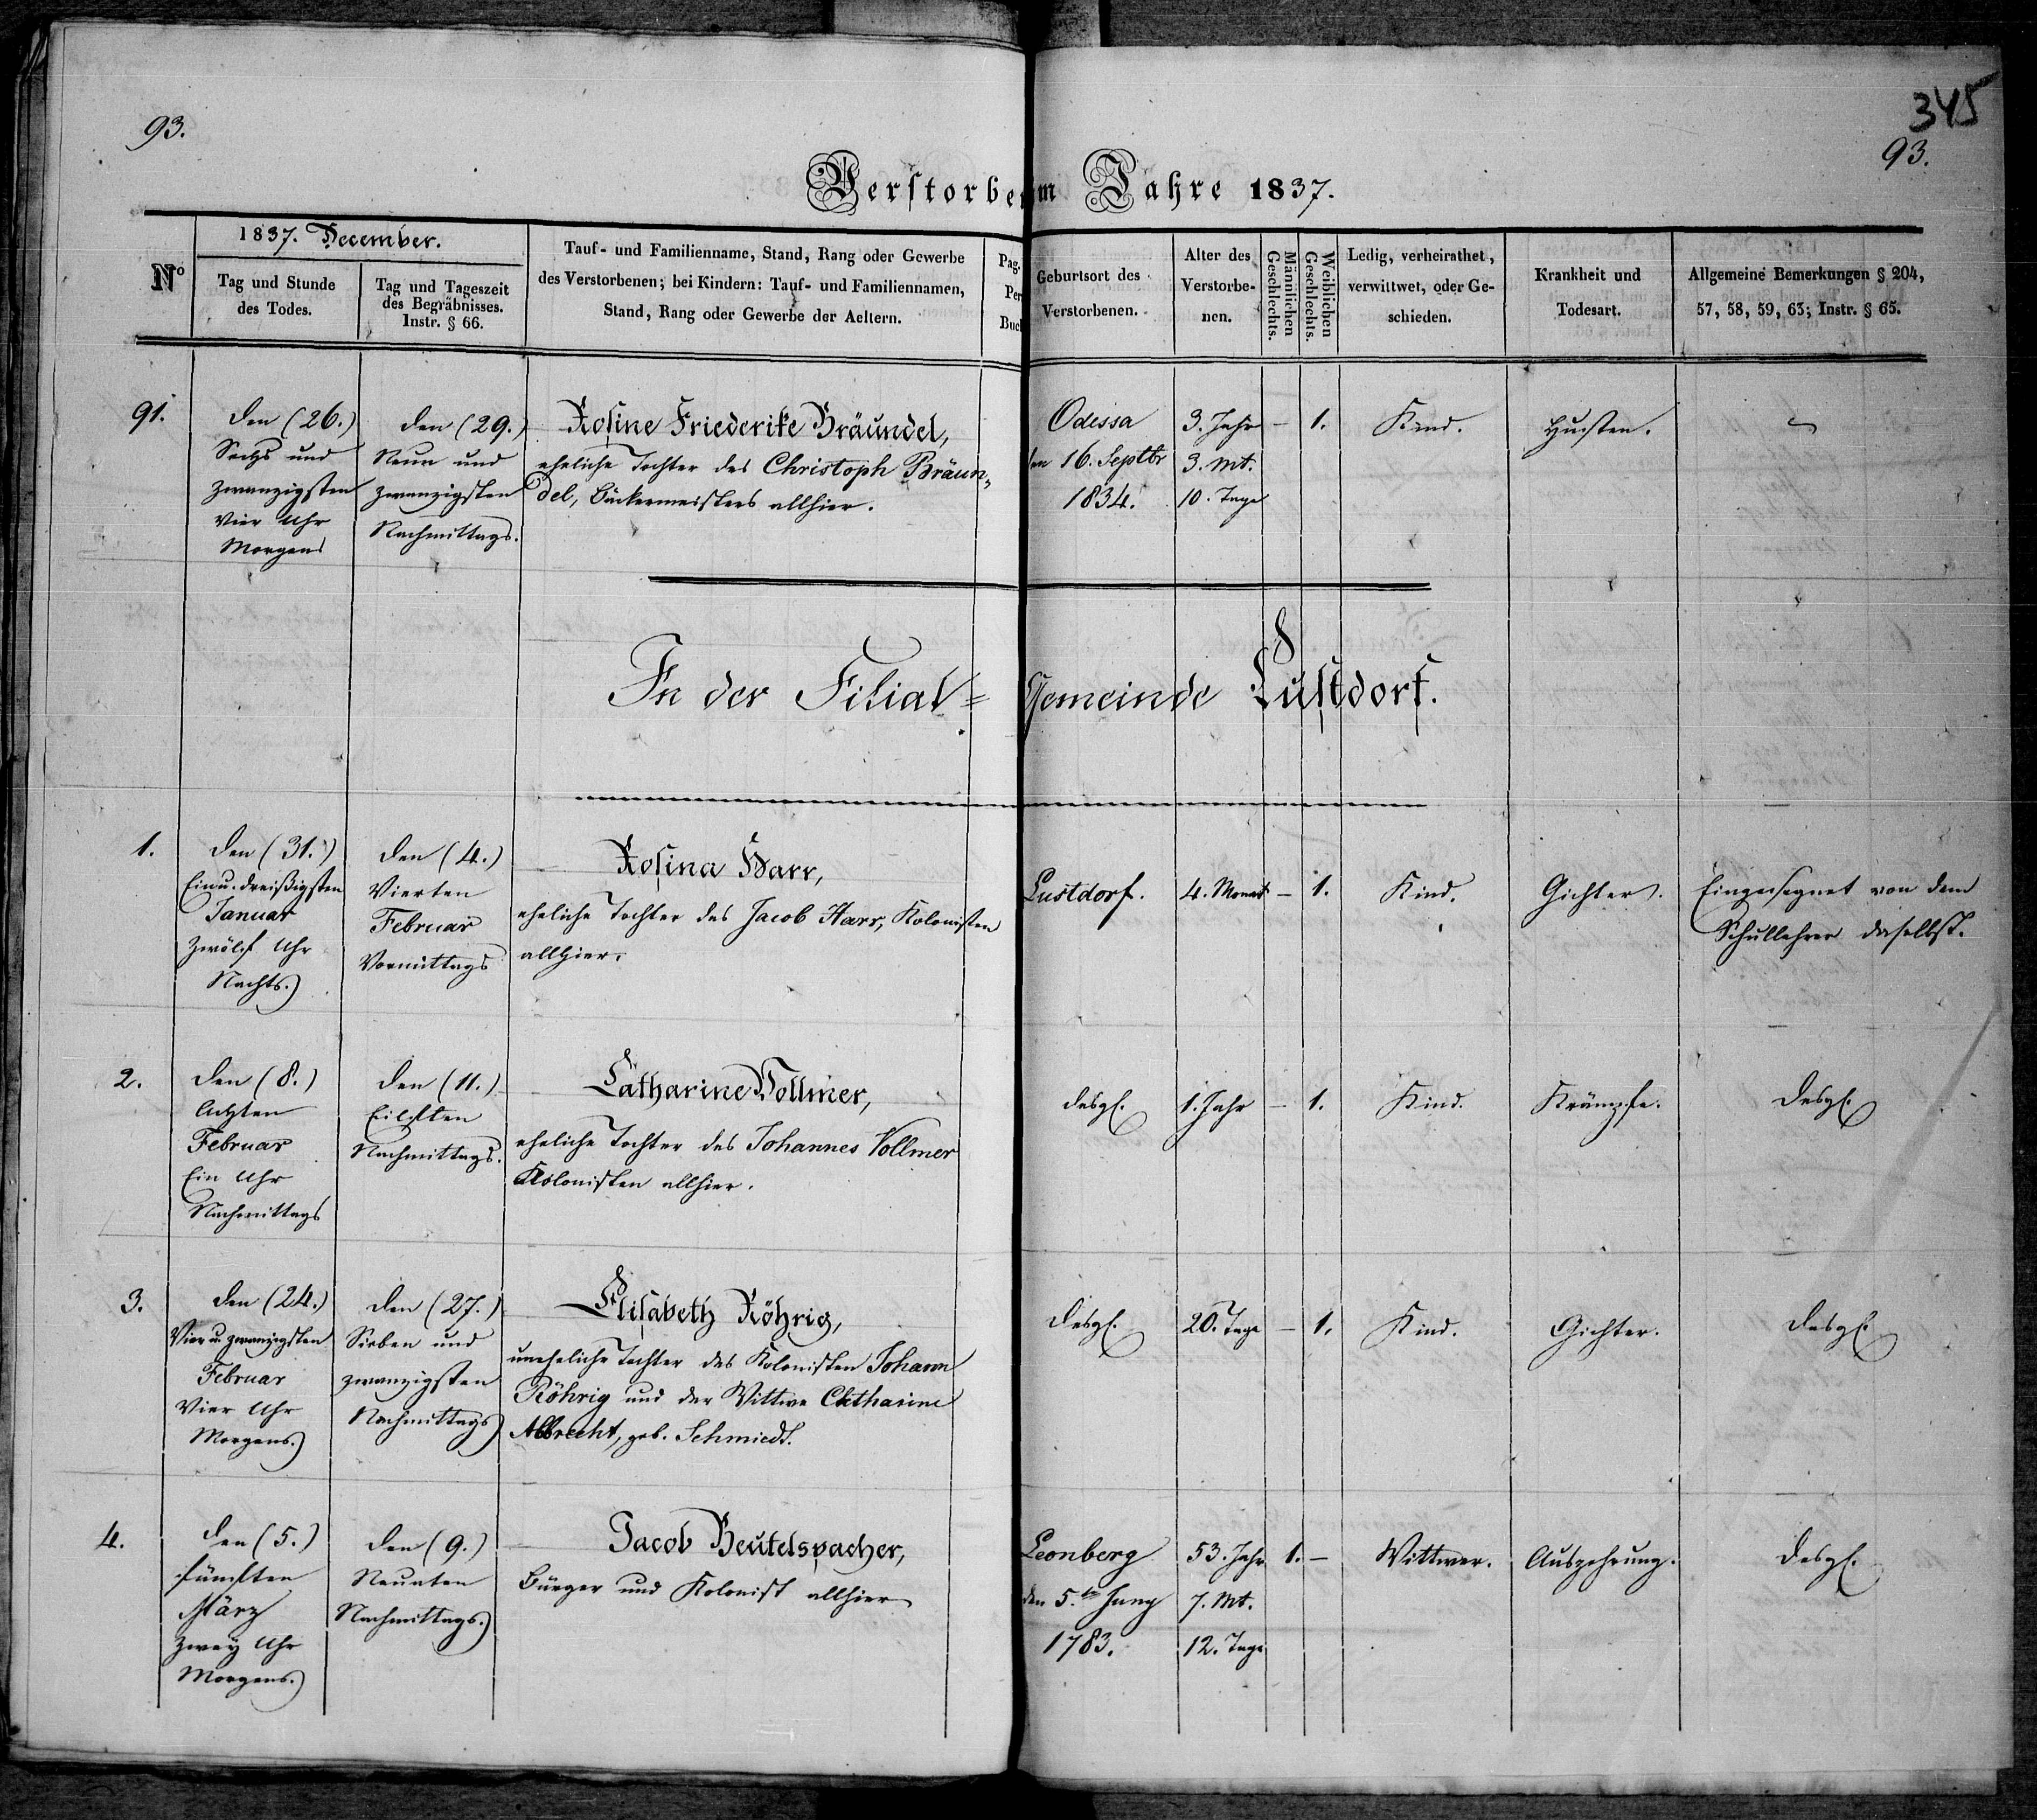 345
93.
93.
Verstorbe im Jahre 1837.
Nº
1837. December.
Tag und Stunde
des Todes.
Tag und Tageszeit
des Begräbnisses.
Instr. § 66.
Tauf- und Familienname, Stand, Rang oder Gewerbe
des Verstorbenen; bei Kindern: Tauf- und Familiennamen,
Stand, Rang oder Gewerbe der Aeltern.
Pag.
Per
Buch
Geburtsort des
Verstorbenen.
Alter des
Verstorbe-
nen.
Männlichen
Geschlechts.
Weiblichen
Geschlechts.
Ledig, verheirathet,
verwittwet, oder Ge-
schieden.
Krankheit und
Todesart.
Allgemeine Bemerkungen § 204,
57, 58, 59, 63; Instr. § 65.
91.
den (26.)
Sechs und
zwanzigsten
Vier Uhr
Morgens
den (29.)
Neun und
zwanzigsten
Nachmittags.
Rosine Friederike Bräundel,
eheliche Tochter des Christoph Bräun„
del, Bäckermeisters allhier.
Odessa
den 16. Septbr
1834.
3. Jahr
3. Mt.
10. Tage
–
1.
Kind.
Husten.
In der Filial=Gemeinde Lustdorf.
1.
den (31.)
Ein u. dreißigsten
Januar
zwölf Uhr
Nachts.)
den (4.)
Vierten
Februar
Vormittags
Rosina Harr,
eheliche Tochter des Jacob Harr, Kolonisten
allhier.
Lustdorf.
4. Monat
–
1.
Kind.
Gichter.
Eingesegnet von dem
Schullehrer daselbst.
2.
den (8.)
Achten
Februar
Ein Uhr
Nachmittags
den (11.)
Eilften
Nachmittags.
Catharine Vollmer,
eheliche Tochter des Johannes Vollmer
Kolonisten allhier.
desgl.
1. Jahr
–
1.
Kind.
Krämpfe.
Desgl.
3.
den (24.)
Vier u. zwanzigsten
Februar
Vier Uhr
Morgens.)
den (27.)
Sieben und
zwanzigsten
Nachmittags)
Elisabeth Röhrig,
uneheliche Tochter des Kolonisten Johann
Röhrig und der Wittwe Catharine
Albrecht, geb. Schmiedt.
Desgl.
20. Tage
–
1.
Kind.
Gichter.
Desgl.
4.
den (5.)
fünften
März
zwey Uhr
Morgens.)
den (9.)
Neunten
Nachmittags.)
Jacob Beutelspacher,
Bürger und Kolonist allhier
Leonberg
den 5.
1783.
53. Jahr
7. Mt.
12. Tage
1.
–
Wittwer.
Auszehrung.
Desgl.